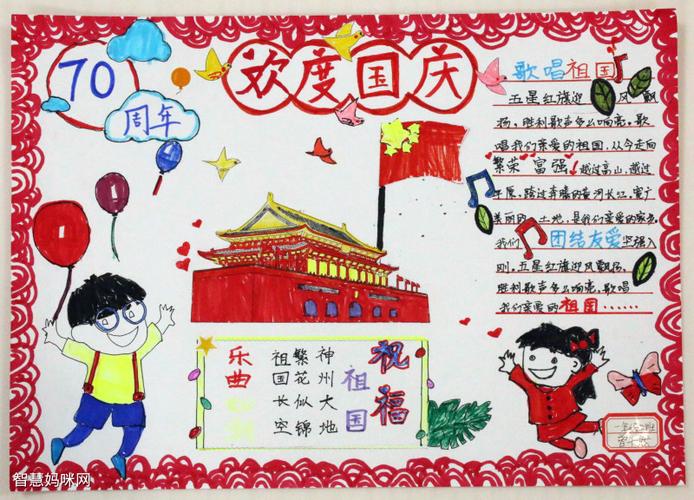 70
周年
欢度国庆
歌唱祖国
五星红旗迎风飘
扬，胜利歌声多么响亮，歌
唱我们亲爱的祖国，从今走向
繁荣 富强，越过高山，越过
平原，跨过奔腾的黄河长江，宽广
美丽的土地，是我们亲爱的家
我们团结友爱坚强入
刚，五星红旗迎风飘扬，
胜利歌声多么响亮，歌唱
我们亲爱的祖国……
祝福
祖国
神州大地
繁花似锦
祖国长空
乐曲
智慧妈咪网